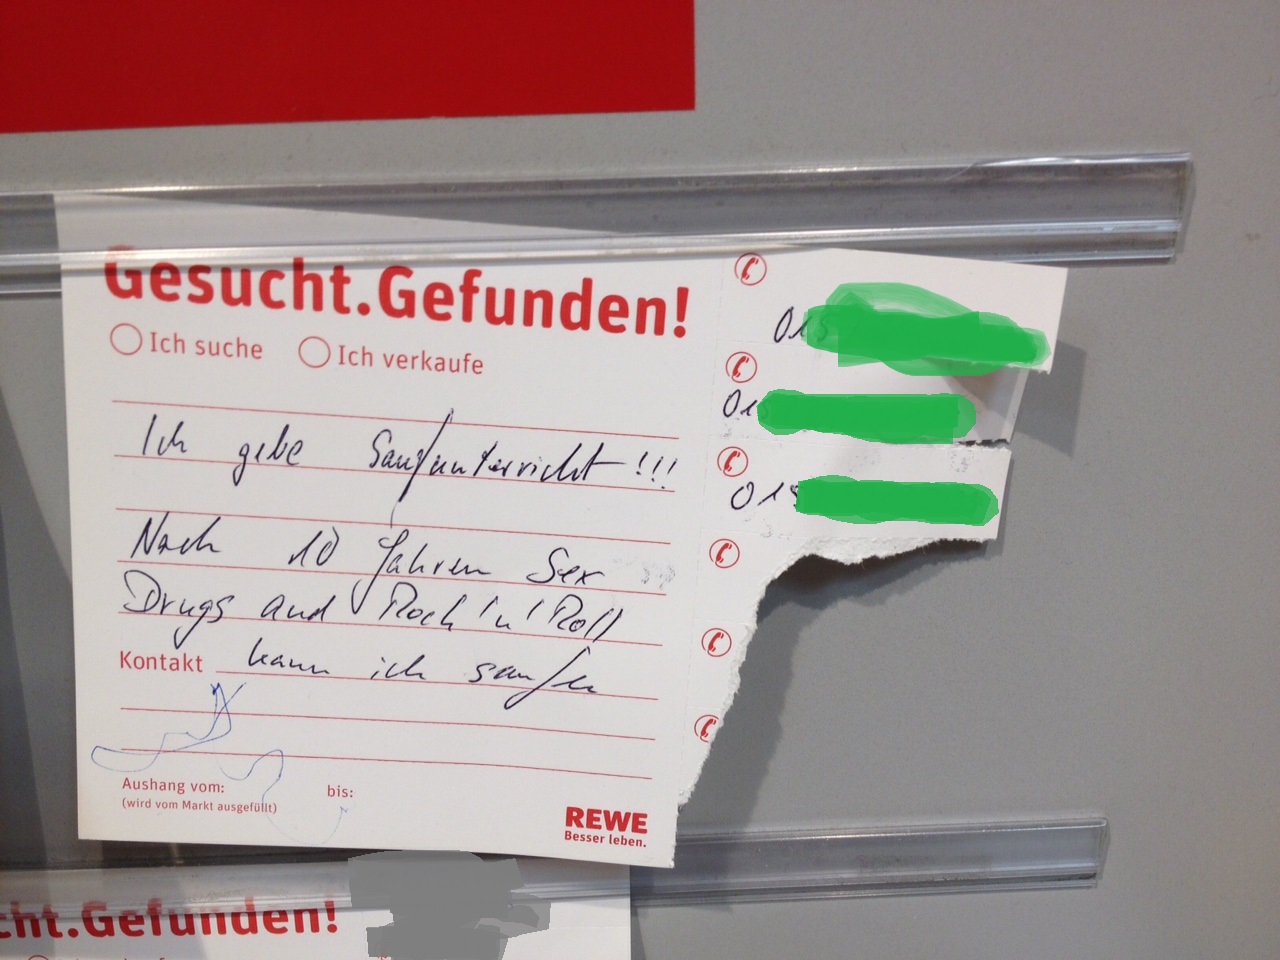 Gesucht.Gefunden!
Ich suche Ich verkaufe
Ich gebe Saufunterricht !!!
Nach 10 Jahren Sex
Drugs and Rock'n'Roll
Kontakt kann ich saufen
Aushang vom: bis:
(wird vom Markt ausgefüllt)
REWE
Besser leben.
015
01
015
cht.Gefunden!